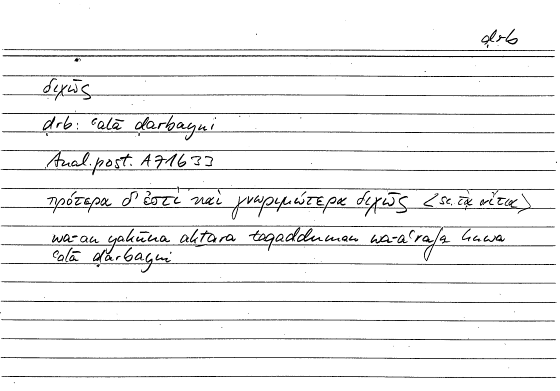 ḍrb
διχῶς
ḍrb: ʿalā ḍarbayni
Anal. post. A 71b33
πρότερα δ' ἐστὶ καὶ γνωριμώτερα διχῶς <sc. τὰ αἴτια>
wa-an yakūna akṯara taqadduman wa-aʿrafa huwa
ʿalā ḍarbayni